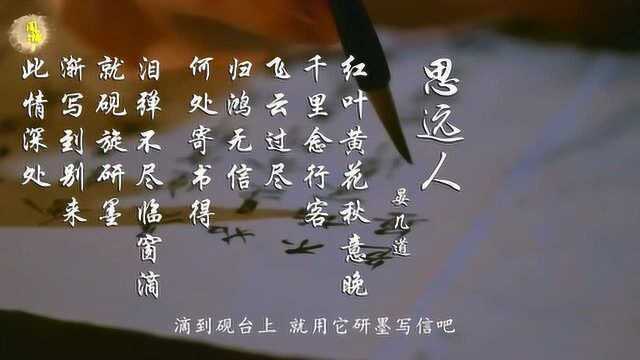 思远人
晏几道
红叶黄花秋意晚
千里念行客
飞云过尽
归鸿无信
何处寄书得
泪弹不尽临窗滴
就砚旋研墨
渐写到别来
此情深处
滴到砚台上 就用它研墨写信吧